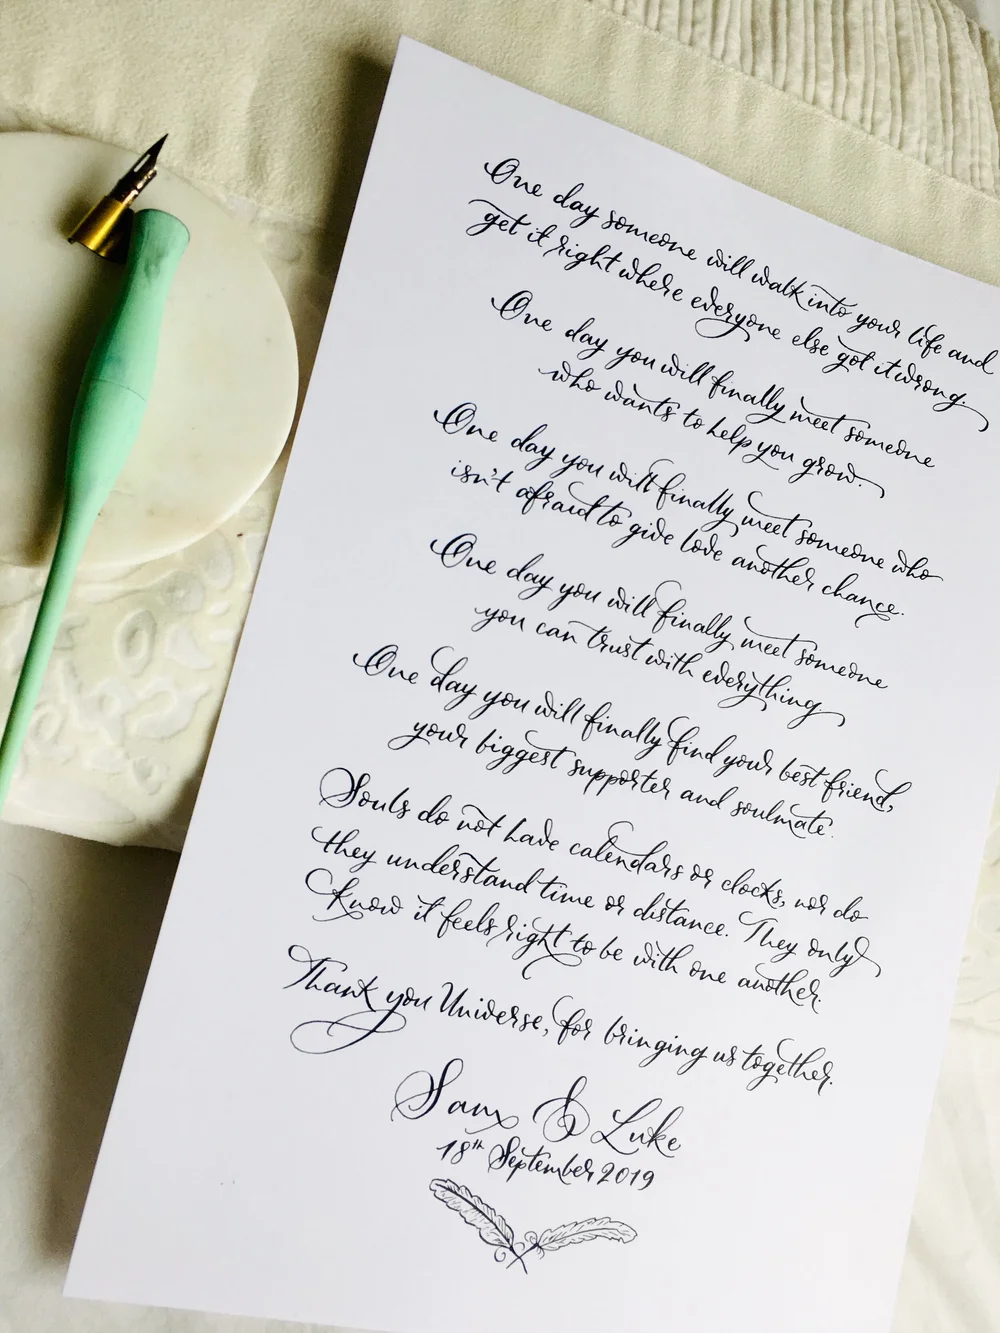 One day someone will walk into your life and
get it right where everyone else got it wrong.
One day you will finally meet someone
who wants to help you grow.
One day you will finally meet someone who
isn't afraid to give love another chance.
One day you will finally meet someone
you can trust with everything.
One day you will finally find your best friend,
your biggest supporter and soulmate.
Souls do not have calendars or clocks, nor do
they understand time or distance. They only
know it feels right to be with one another.
Thank you Universe, for bringing us together.
Sam & Luke
18th September 2019